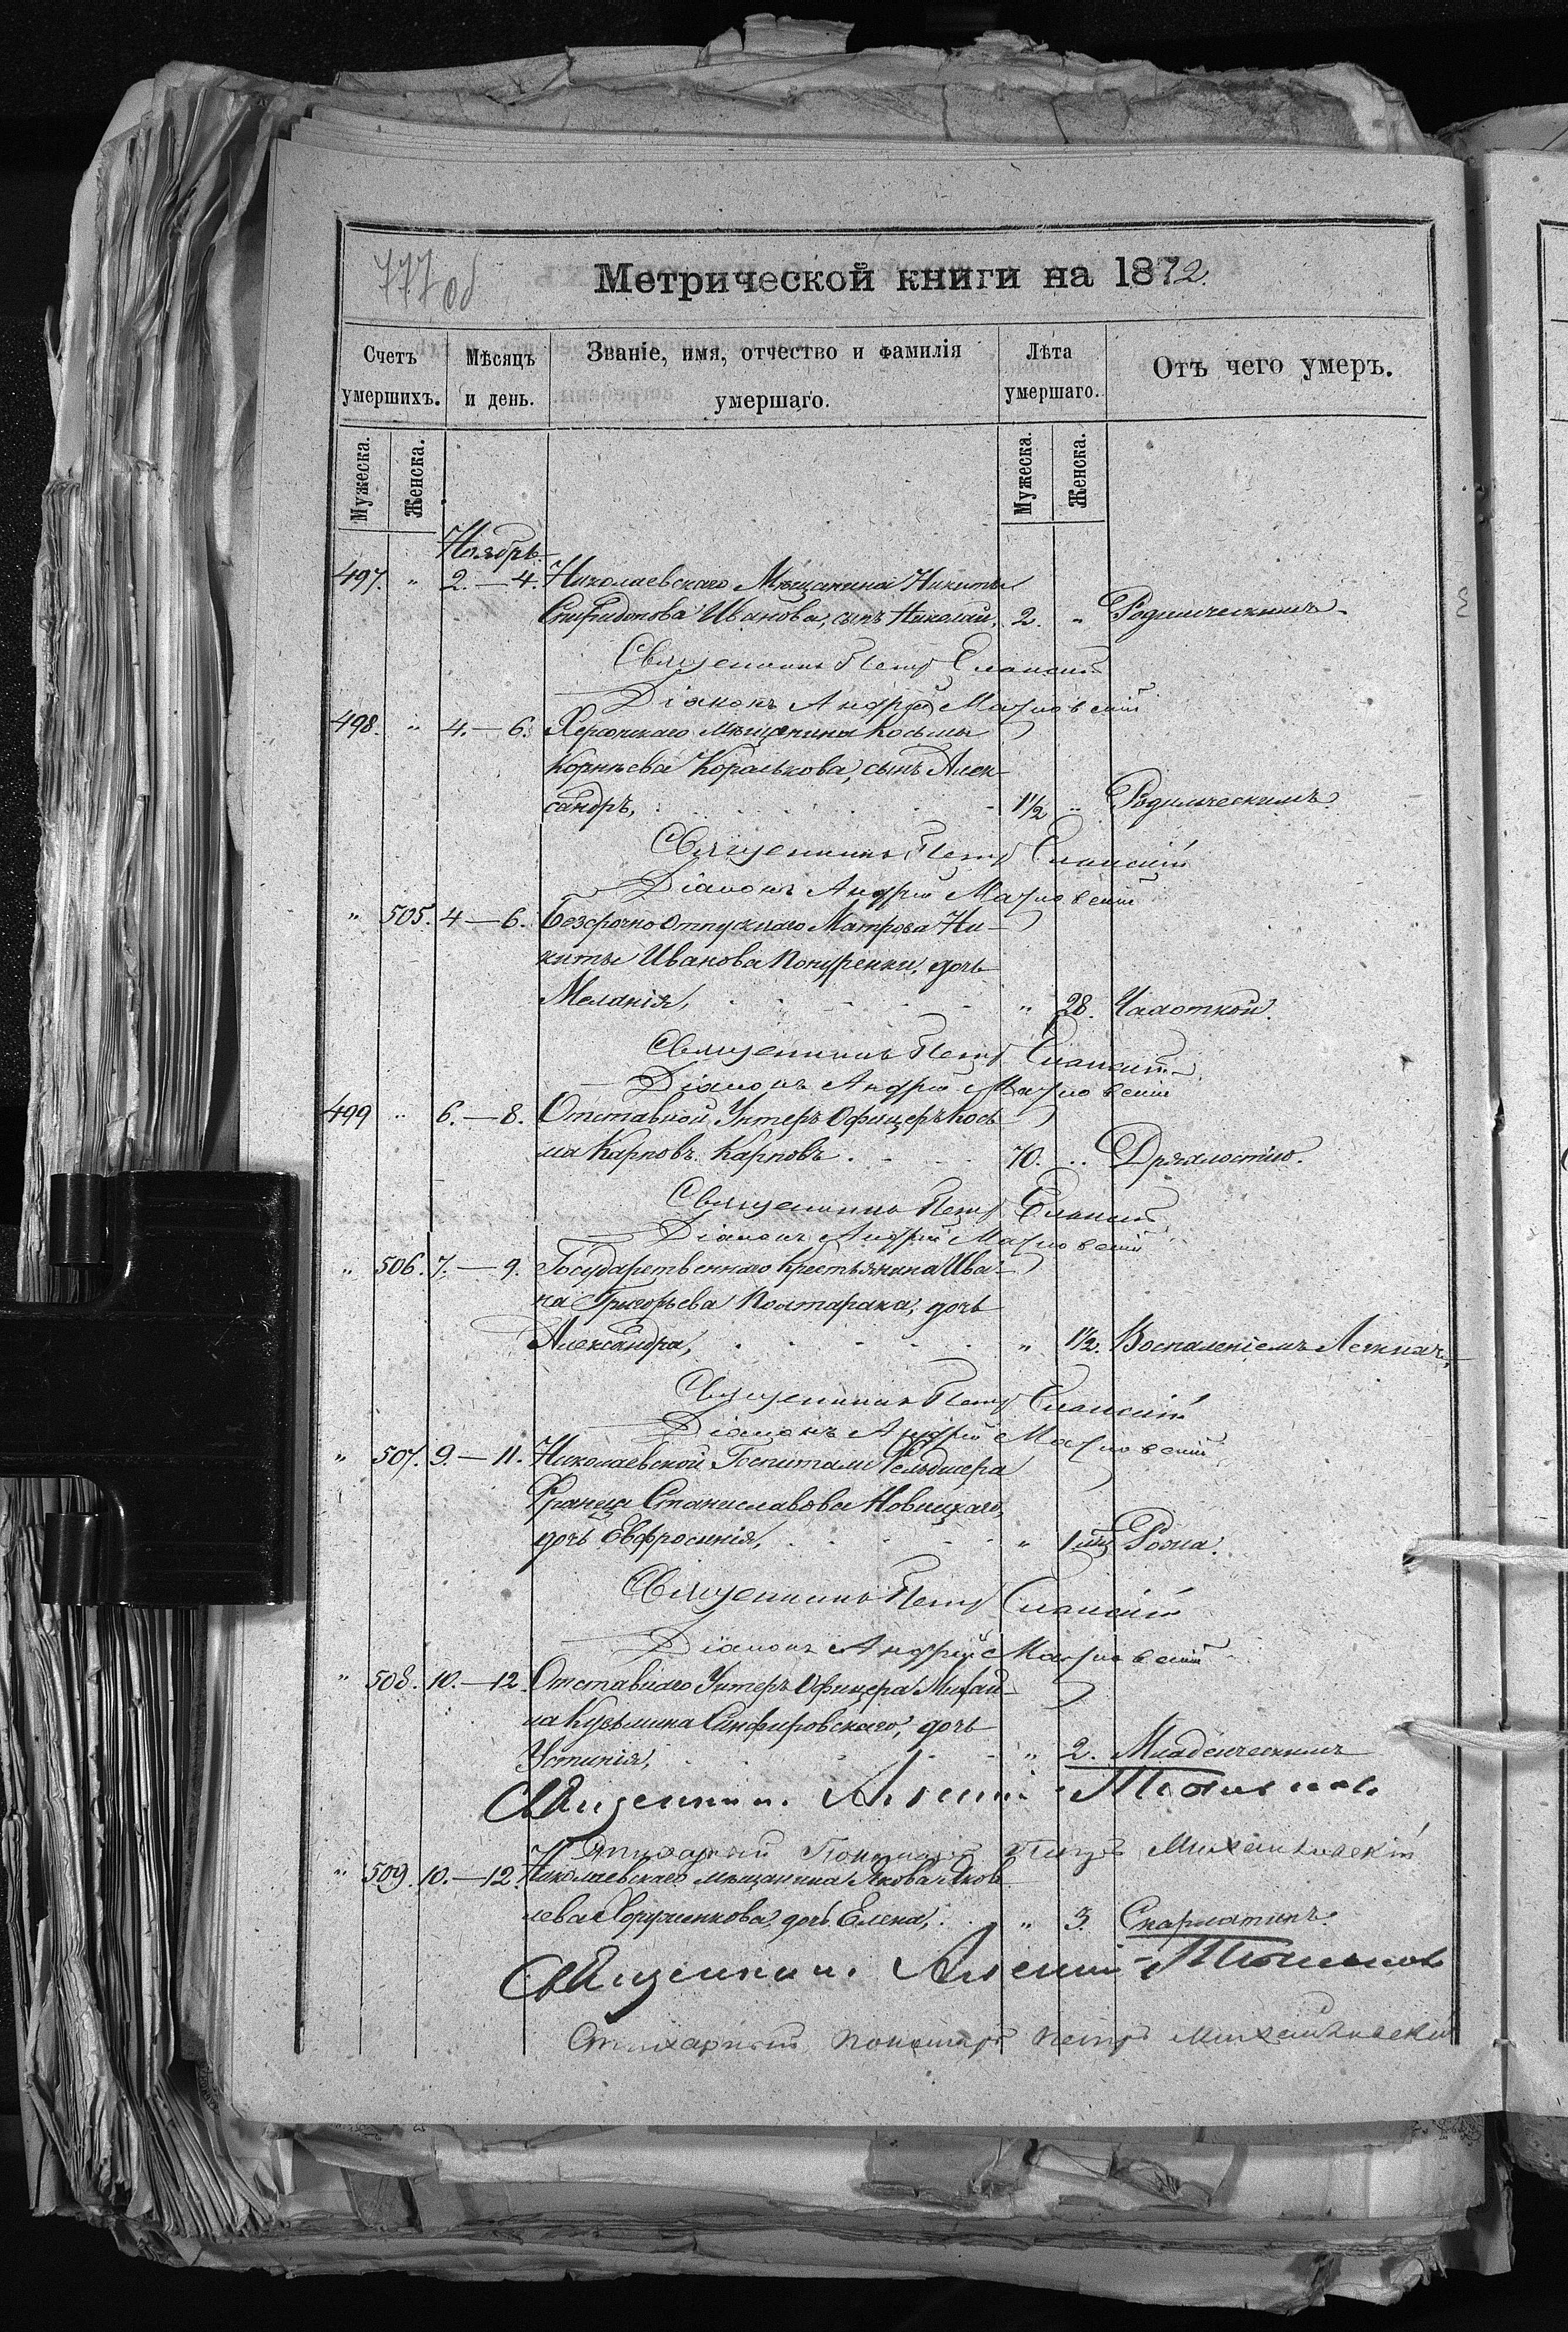 777 об
Метрической книги на 1872.
Счетъ умершихъ.
Мѣсяцъ и день.
Званіе, имя, отчество и фамилія умершаго.
Лѣта умершаго.
Отъ чего умеръ.
Мужеска. Женска. Мужеска. Женска.
Ноябрь
497. " 2.—4. Николаевскаго Мѣщанина Никиты
Спиридонова Иванова, сынъ Николай, 2. " Родимческимъ
Священникъ Петръ Еланскій
Діаконъ Андрей
498. " 4.—6. Херсонскаго Мѣщанина Косьмы
Корнѣева Королькова, сынъ Алек-
сандръ, 1½ " Родимческимъ.
Священникъ Петръ Еланскій
Діаконъ Андрей
" 505. 4—6. Безсрочно отпускнаго Матроса Ни-
киты Иванова дочь
Меланія, " 28. Чахоткой.
Священникъ Петръ Еланскій
Діаконъ Андрей
499 " 6.—8. Отставной Унтеръ Офицеръ Кось
ма Карповъ Карповъ 70. " Дряхлостію.
Священникъ Петръ Еланскій
Діаконъ Андрей
" 506. 7.—9. Государственнаго Крестьянина Ива-
на Григорьева дочь
Александра, " 1½. Воспаленіемъ Легкихъ
Священникъ Петръ Еланскій
Діаконъ Андрей
" 507. 9.—11. Николаевской Госпитали Фельдшера
Франца Станиславова Новицкаго,
дочь Евфросинія, " 1 мц Рожа.
Священникъ Петръ Еланскій
Діаконъ Андрей
" 508. 10.—12. Отставнаго Унтеръ Офицера Михаи-
ла Кузьмина дочь
Устинія, " 2. Младенческимъ
Священникъ
Стихарный Пономарь Петръ Михайловскій
" 509. 10.—12. Николаевскаго мѣщанина Якова Яков
лева дочь Елена, " 3. Скарлатинъ.
Священникъ
Стихарный Пономарь Петръ Михайловскій